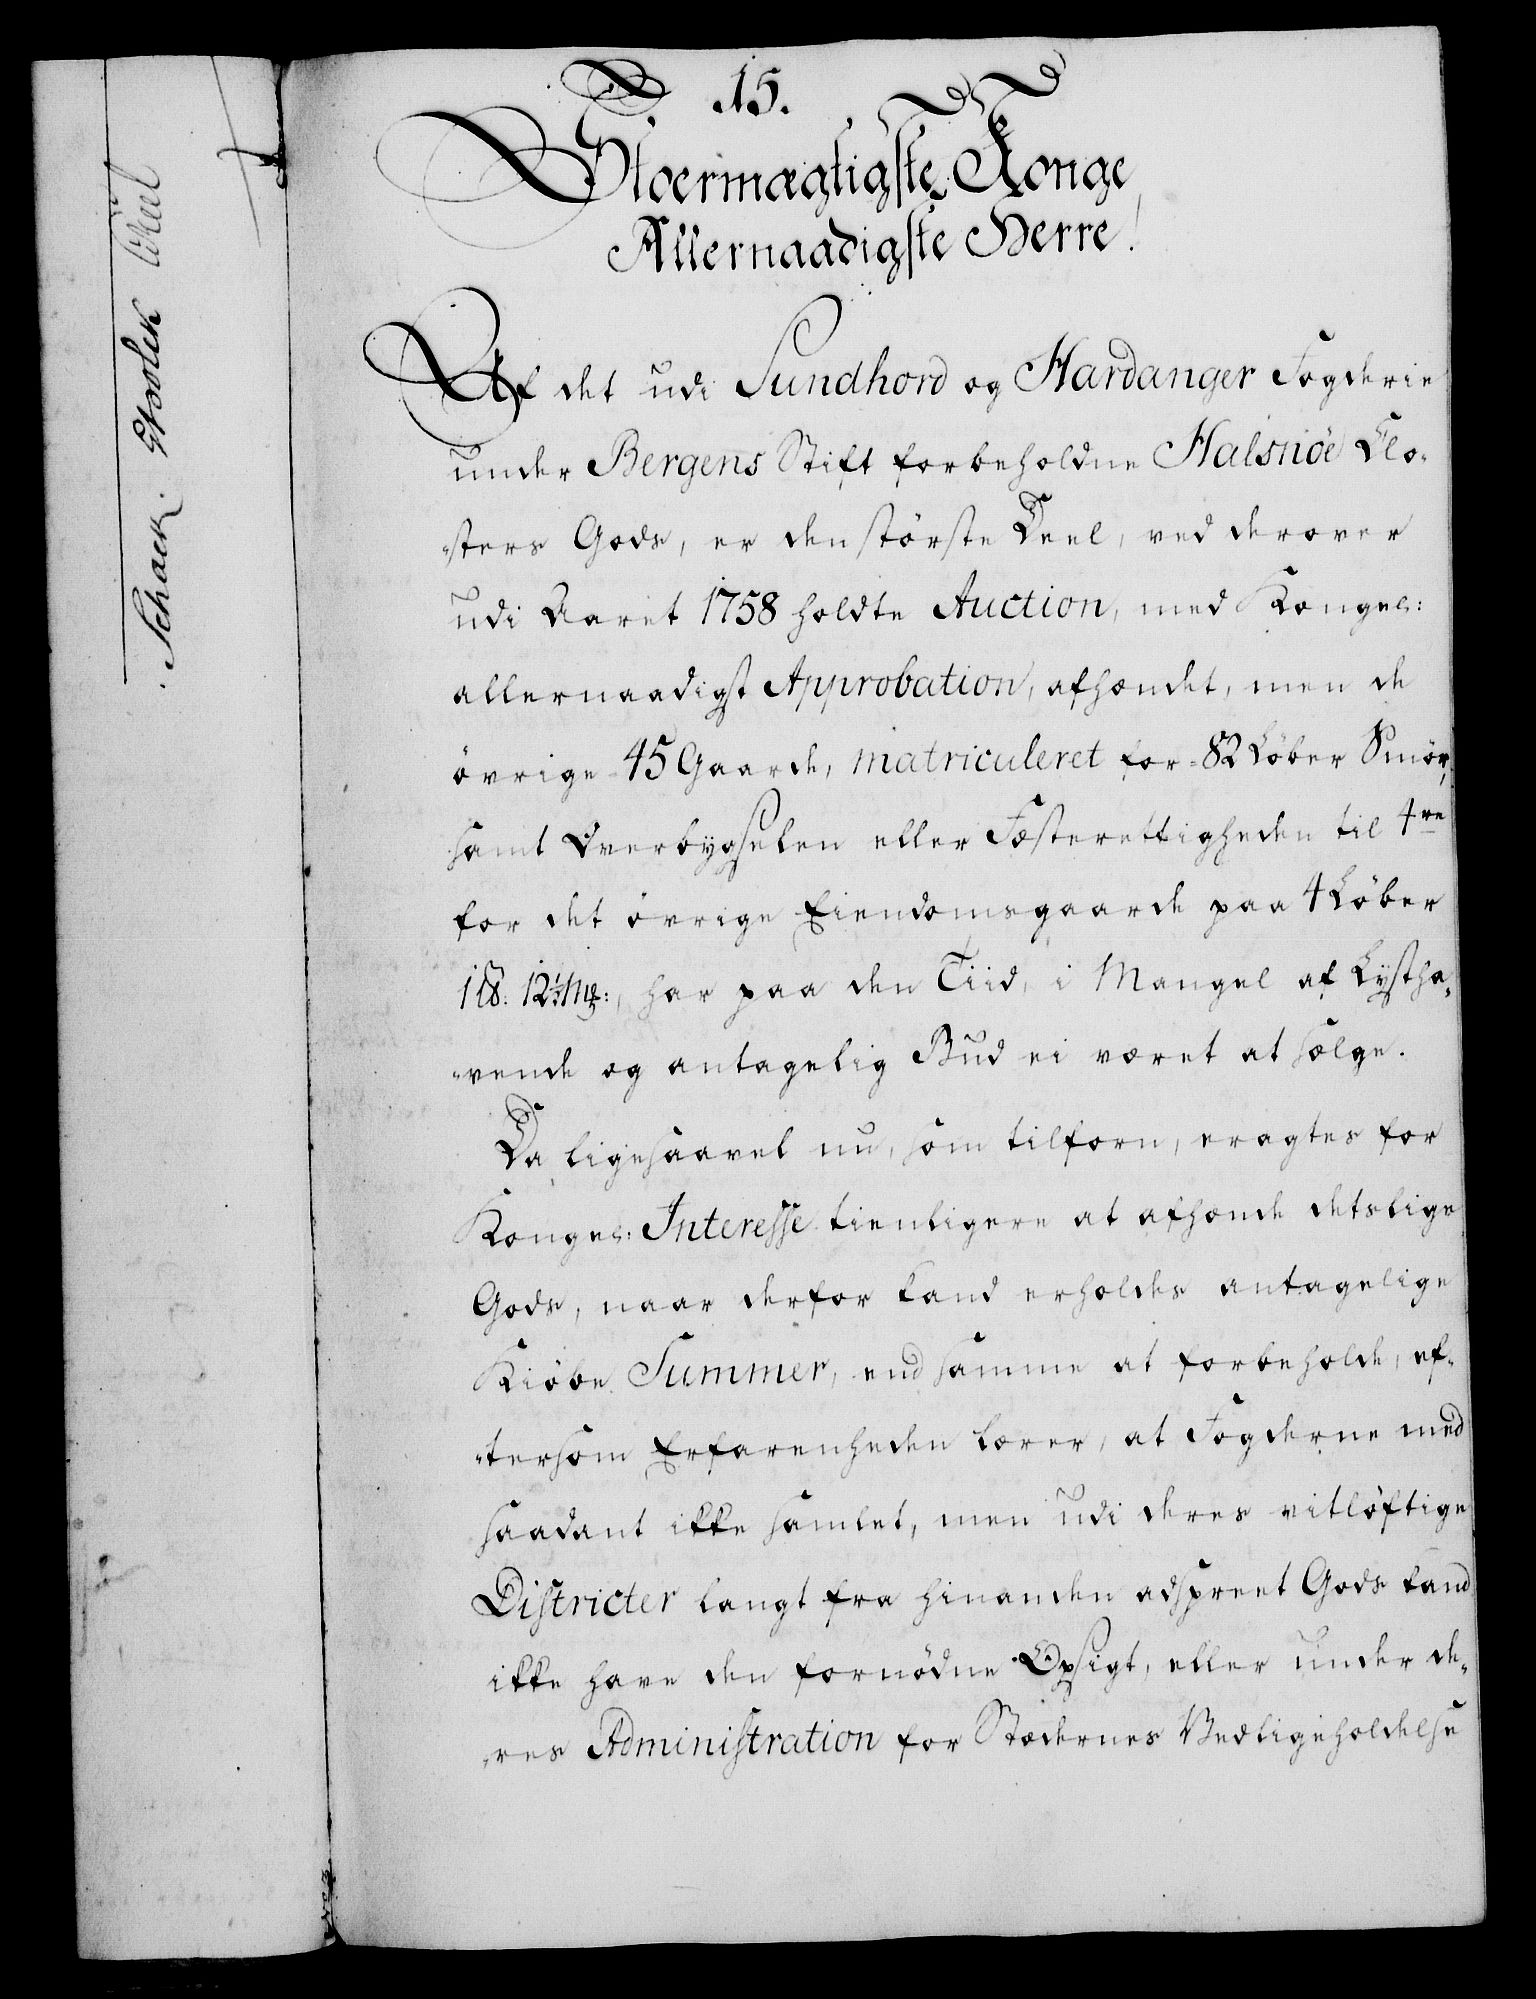 15.
Stoermægtigste Konge,
Allernaadigste Herre!
Af det udi Sundhord og Hardanger Fogderie
under Bergens Stift forbeholdne Halsnöe Clo-
sters Gods, er den störste Deel, ved derover
udi Aaret 1758 holdte Auction, med Kongel:
allernaadigst Approbation, afhændet, men de
övrige 45 Gaarde, matriculeret for 82 Löber Smör,
samt Overbygselen eller Fæsterettigheden til 4re
for det övrige Eiendomsgaarde paa 4 Löber
1 ℔: 12½ mk:, har paa den Tiid, i Mangel af Lystha-
vende og antagelig Bud ei været at sælge.
Da ligesaavel nu, som tilforn, eragtes for
Kongel: Interesse tienligere at afhænde detslige
Gods, naar derfor kand erholdes antagelige
Kiöbe Summer, end samme at forbeholde, ef-
tersom Erfarenheden lærer, at Fogderne med
saadant ikke samlet, men udi deres vitlöftige
Districter langt fra hinanden adspreet Gods kand
ikke have den fornödne Opsigt, eller under de-
res Administration for Stædernes Vedligeholdelse
Schack.